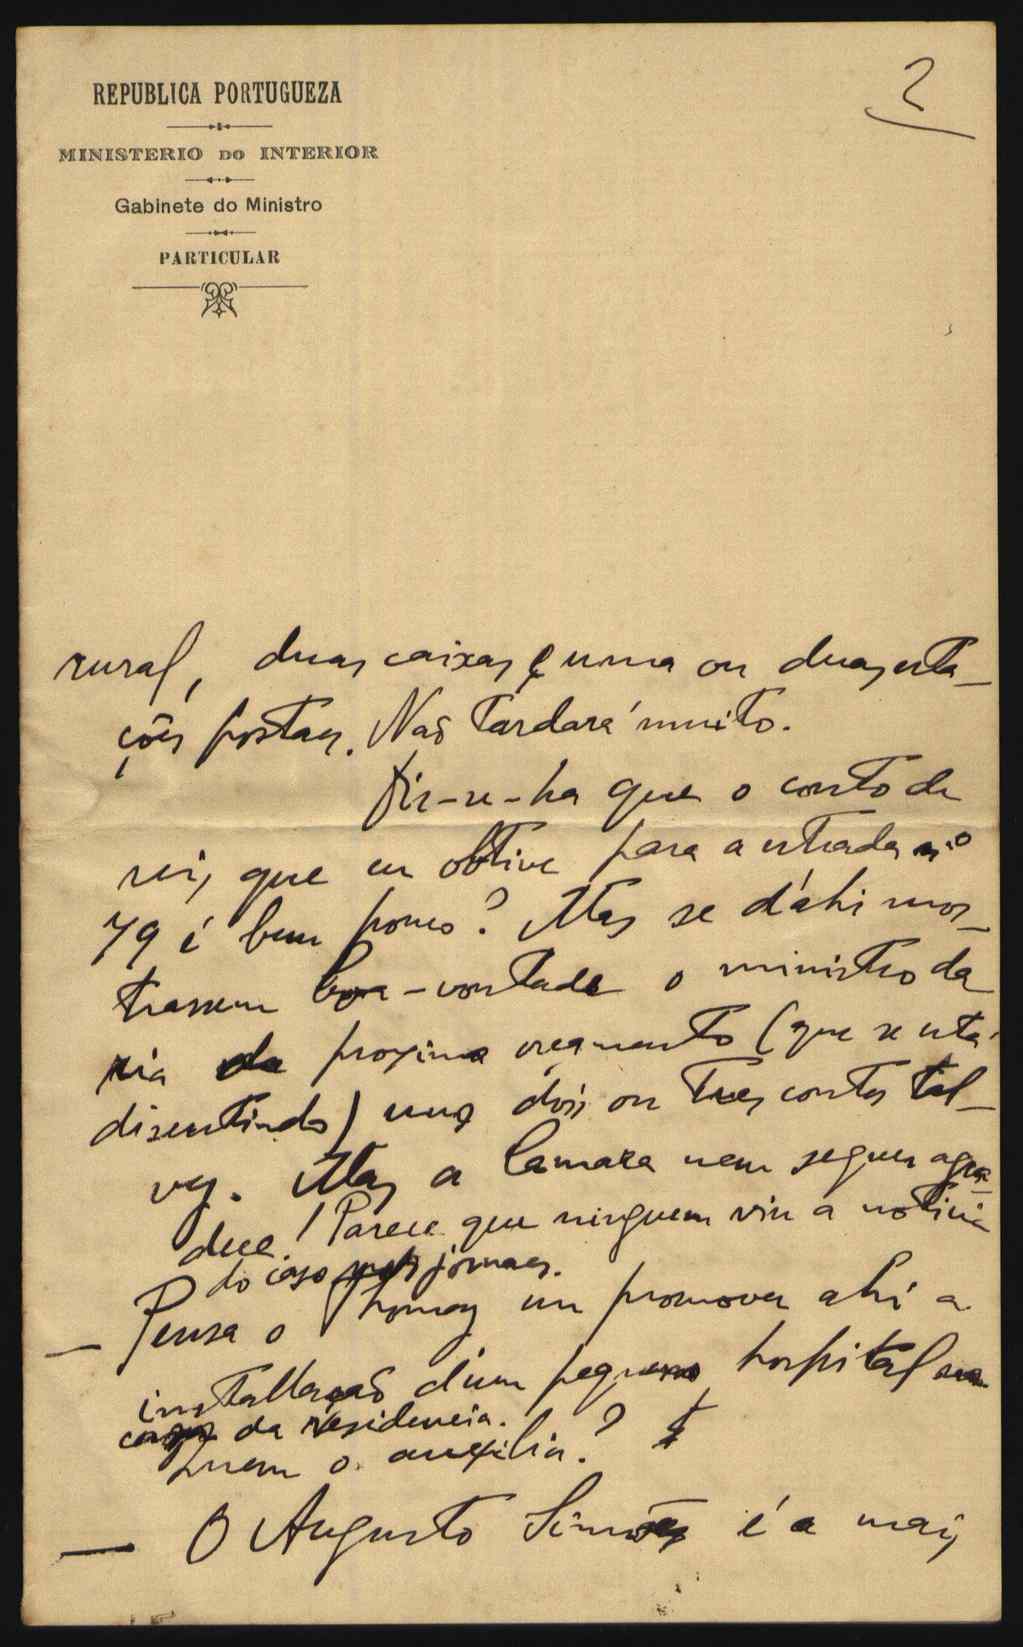 2
REPUBLICA PORTUGUEZA
MINISTERIO DO INTERIOR
Gabinete do Ministro
PARTICULAR
rural, duas caixas e uma ou duas esta-
ções postaes. Não tardará muito.
Dir-se-ha que o conto de
reis, que eu obtive para a estrada nº
79 é bem pouco? Mas se d'ahi mos-
trassem boa-vontade o ministro da
ria proximo orçamento (que se está
discutindo) uns dois ou tres contos tal-
vez. Mas a Camara nem sequer agra-
dece! Parece que ninguem viu a noticia
do caso nos jornaes.
— Pensa o Thomaz em promover ahi a
installação d'um pequeno hospital na
da residencia.
Quem o auxilia?
— O Augusto Simões é a mais